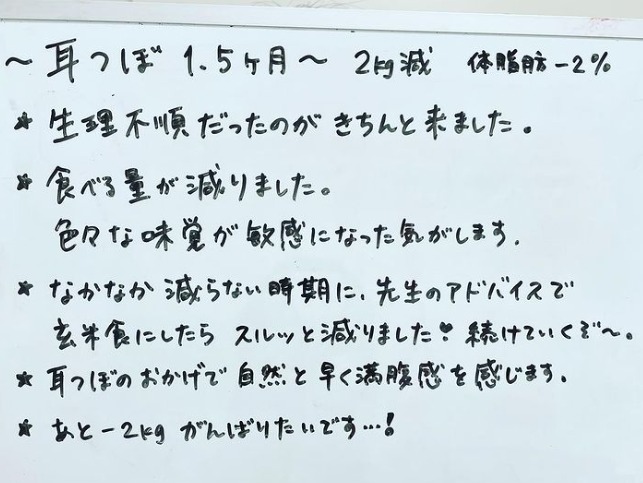 ～耳つぼ 1.5ヶ月～ 2kg減 体脂肪-2%
* 生理不順だったのがきちんと来ました。
* 食べる量が減りました。
色々な味覚が敏感になった気がします。
* なかなか減らない時期に、先生のアドバイスで
玄米食にしたらスルッと減りました♥続けていくぞ～。
* 耳つぼのおかげで自然と早く満腹感を感じます。
* あと-2kgがんばりたいです…!